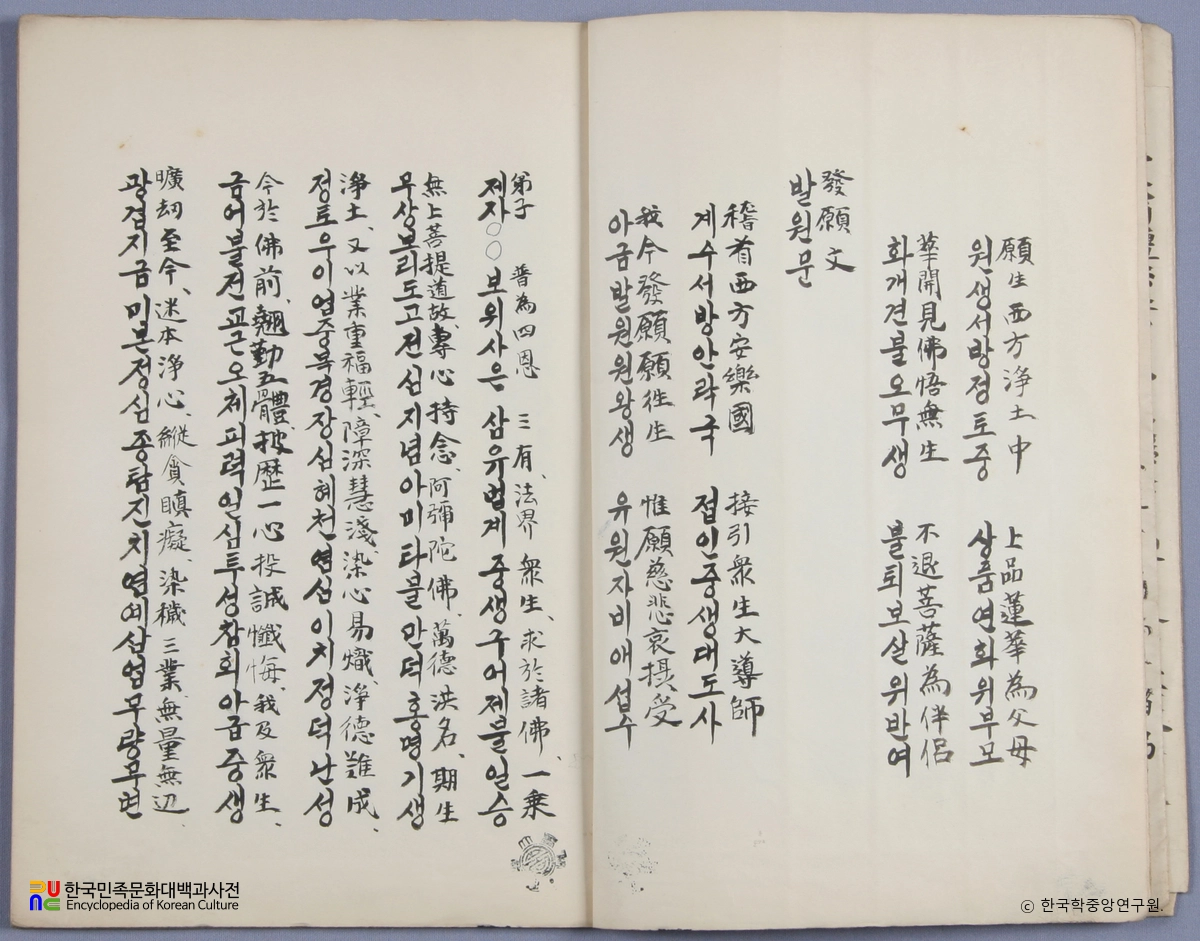 願生西方淨土中 上品蓮華為父母
원생서방정토중 상품연화위부모
華開見佛悟無生 不退菩薩為伴侶
화개견불오무생 불퇴보살위반여
發願文
발원문
稽首西方安樂國 接引衆生大導師
계수서방안락국 접인중생대도사
我今發願願徃生 惟願慈悲哀摂受
아금발원원왕생 유원자비애섭수
弟子 普為四恩 三有、法界衆生、求於諸佛、一乗
제자○○보위사은 삼유법계중생구어제불일승
無上菩提道故、專心持念、阿彌陀佛、萬德洪名、期生
무상보리도고전심지념아미타불만덕홍명기생
淨土、又以業重福輕、障深慧淺、染心易熾、淨德難成、
정토우이업중복경장심혜천염심이치정덕난성
今於佛前、翹勤五體、披歴一心、投誠懺悔、我及衆生、
금어불전교근오체피력일심투성참회아급중생
曠劫至今、迷本淨心、縱貪瞋癡、染穢三業、無量無辺、
광겁지금미본정심종탐진치염예삼업무량무변
한국민족문화대백과사전
Encyclopedia of Korean Culture
ⓒ 한국학중앙연구원.